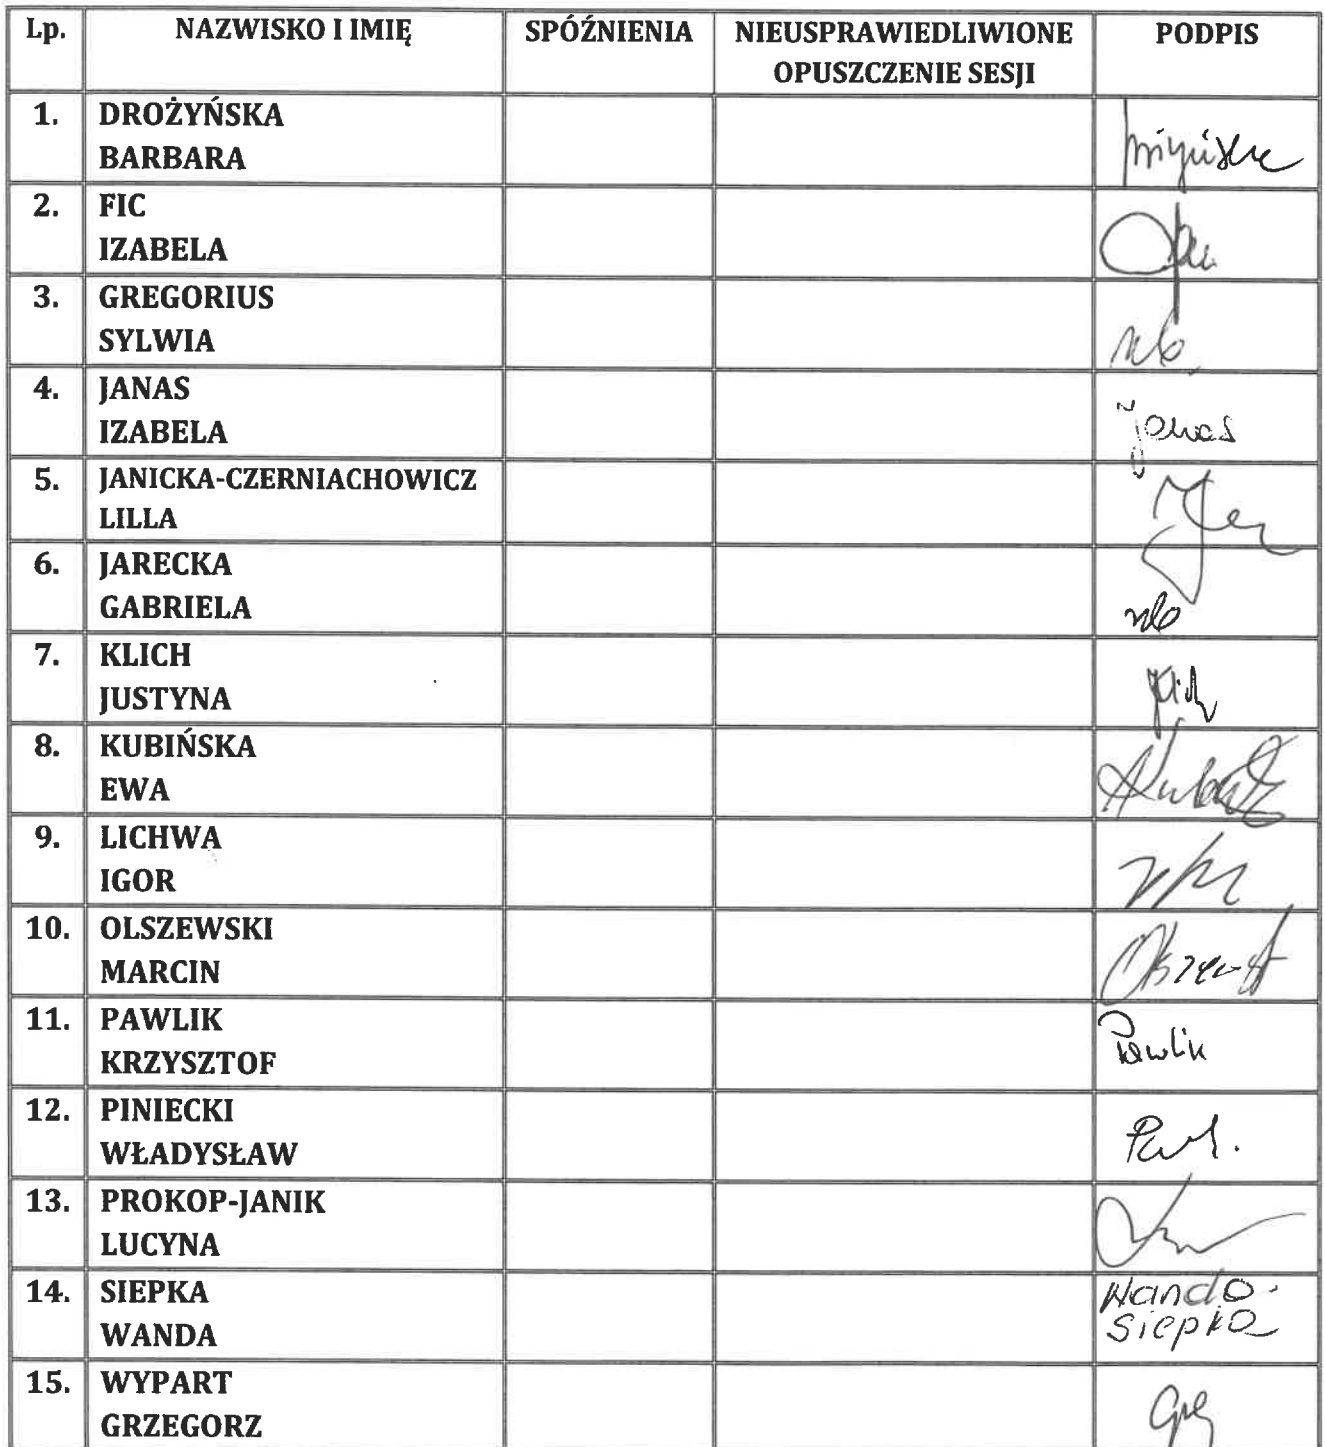 Lp. NAZWISKO I IMIĘ SPÓŹNIENIA NIEUSPRAWIEDLIWIONE PODPIS
OPUSZCZENIE SESJI
1. DROŻYŃSKA
BARBARA
2. FIC
IZABELA
3. GREGORIUS
SYLWIA
nb.
4. JANAS
IZABELA
Janas
5. JANICKA-CZERNIACHOWICZ
LILLA
6. JARECKA
GABRIELA
nb
7. KLICH
JUSTYNA
Klich
8. KUBIŃSKA
EWA
9. LICHWA
IGOR
10. OLSZEWSKI
MARCIN
11. PAWLIK
KRZYSZTOF
Pawlik
12. PINIECKI
WŁADYSŁAW
13. PROKOP-JANIK
LUCYNA
14. SIEPKA
WANDA
Wanda
Siepka
15. WYPART
GRZEGORZ